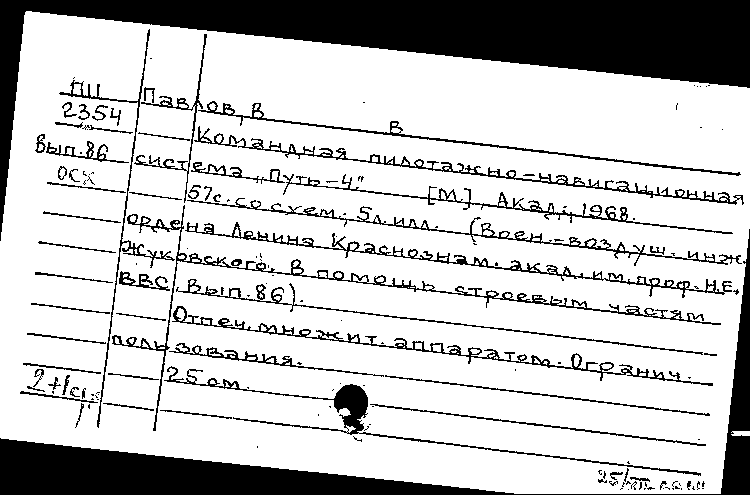 ПЦ
2354
Вып.86
ОСХ
Павлов, В В
Командная пилотажно-навигационная
система „Путь-4". [М.], Акад., 1968.
57с. со схем.; 5л. илл. (Воен.-воздуш. инж.
ордена Ленина Краснознам. акад. им. проф. Н.Е.
Жуковского. В помощь строевым частям
ВВС, Вып. 86).
Отпеч. множит. аппаратом. Огранич.
пользования.
25 см.
2+1